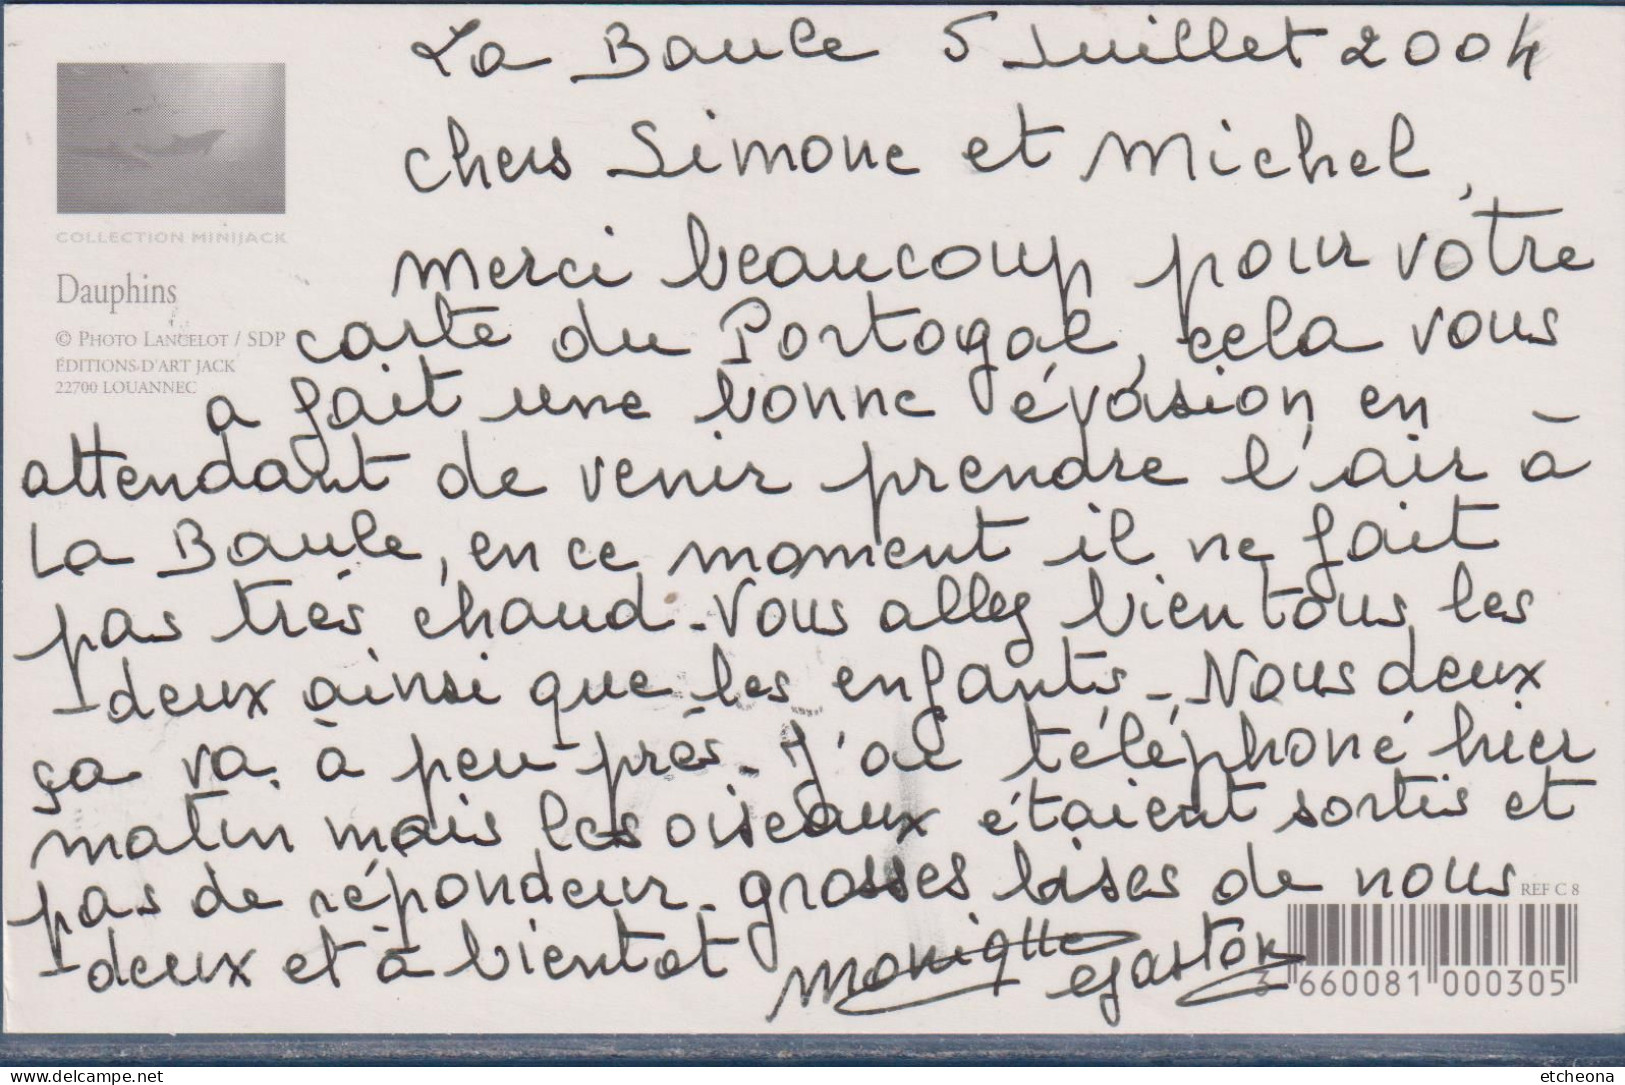 La Baule 5 Juillet 2004
chers Simone et Michel,
merci beaucoup pour votre
carte du Portogal, cela vous
a fait une bonne évasion en
attendant de venir prendre l'air à
La Baule, en ce moment il ne fait
pas très chaud - Vous allez bien tous les
deux ainsi que les enfants - Nous deux
ça va à peu près - J'ai téléphoné hier
matin mais les oiseaux étaient sortis et
pas de répondeur - grosses bises de nous
deux et à bientot monique Gaston
COLLECTION MINIJACK
Dauphins
© PHOTO LANCELOT / SDP
ÉDITIONS D'ART JACK
22700 LOUANNEC
REF C 8
3 660081 000305
Delcampe.net
etcheona